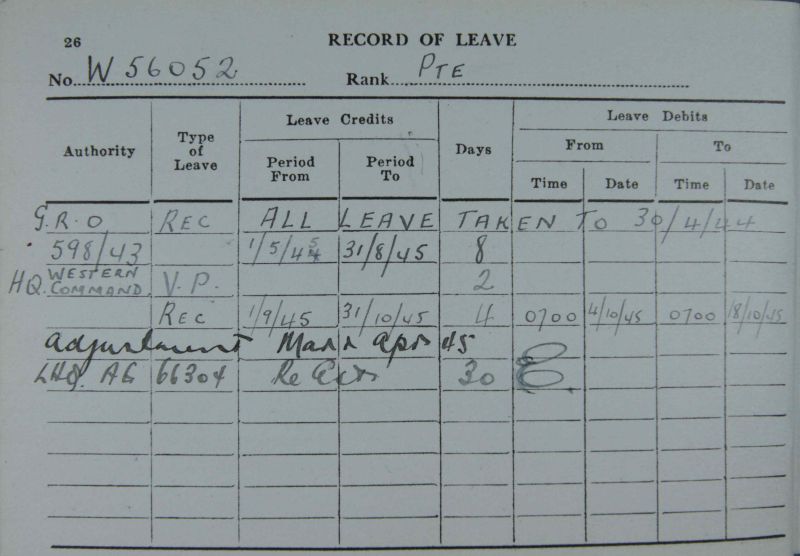 26 RECORD OF LEAVE
No. W 56052 Rank PTE
Authority Type of Leave Leave Credits Days Leave Debits
Period From Period To From To
Time Date Time Date
G.R.O REC ALL LEAVE TAKEN TO 30/4/44
598/43 1/5/45 31/8/45 8
HQ. WESTERN COMMAND. V.P. 2
REC 1/9/45 31/10/45 4 0700 4/10/45 0700 18/10/45
adjustment Mar & Apr 45
LHQ. AG 66304 30